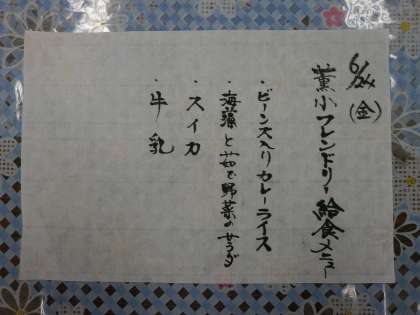 6/24(金)
薫小フレンドリー給食メニュー
・ビーンズ入りカレーライス
・海藻と茹で野菜のサラダ
・スイカ
・牛乳